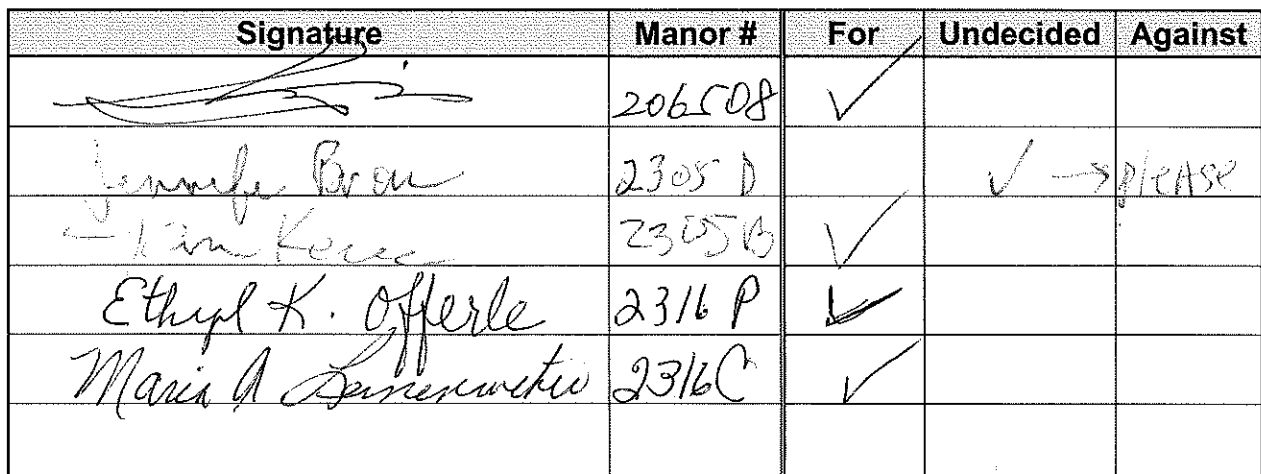 Signature Manor # For Undecided Against
206508 ✓
Jennife Brow 2305 D ✓ → please
2305 B ✓
Ethyl K. Offerle 2316 P ✓
Maria A 2316C ✓